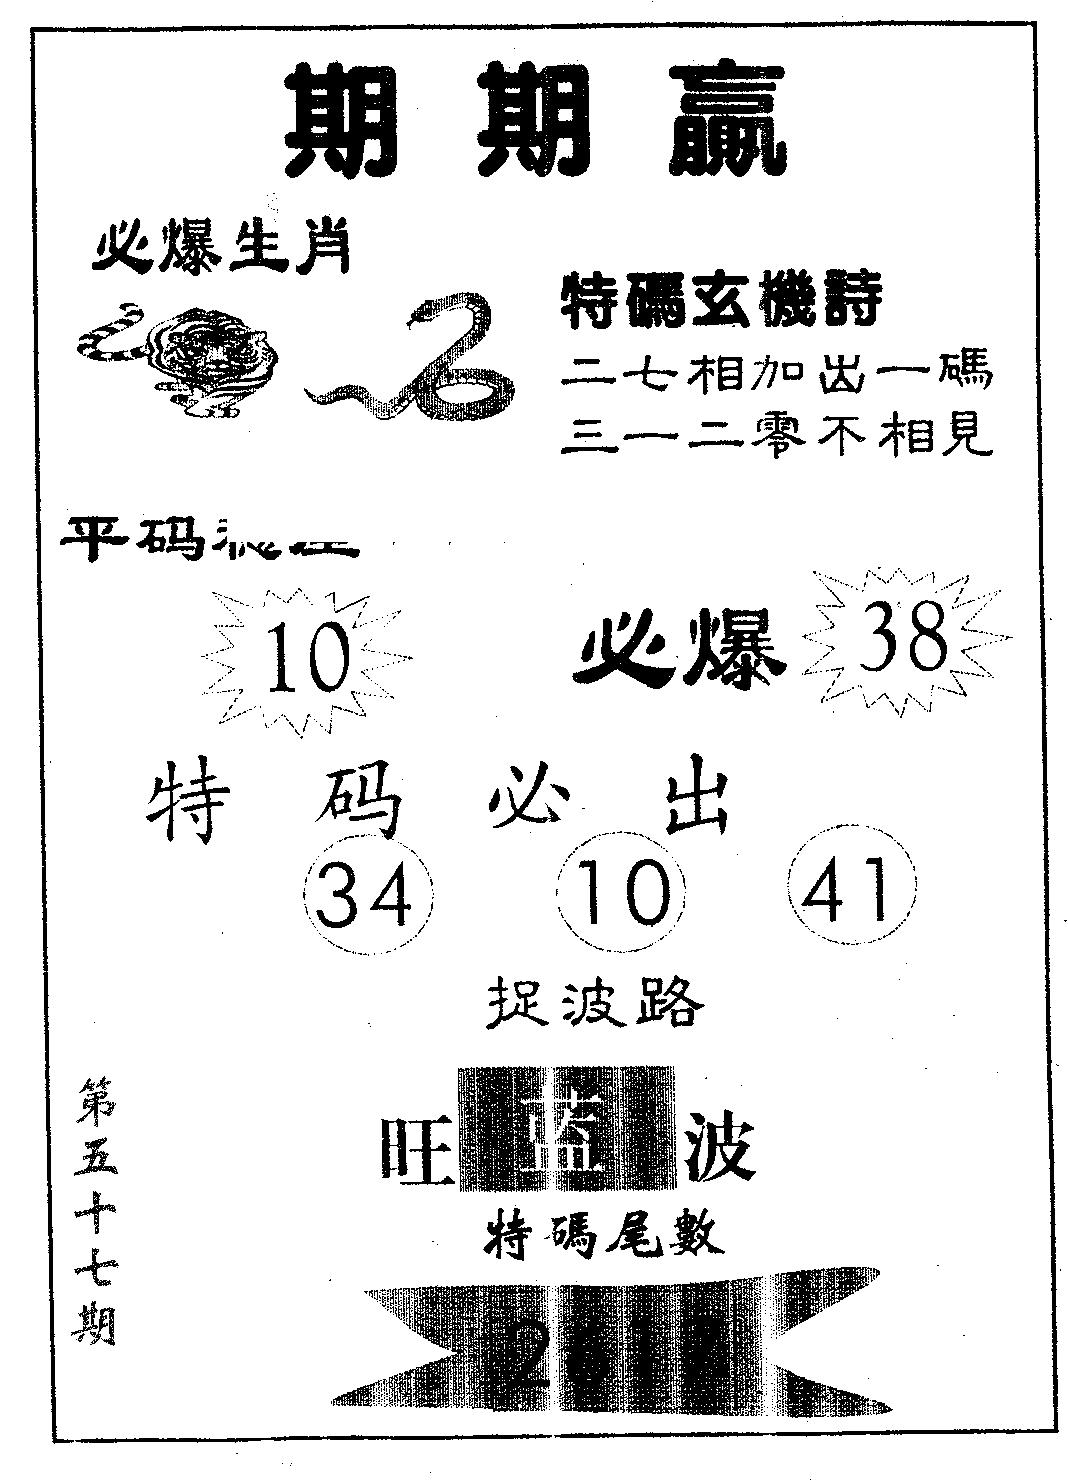 期期贏
必爆生肖
特碼玄機詩
二七相加出一碼
三一二零不相見
平码
10
必爆 38
特码必出
34 10 41
捉波路
旺蓝波
特碼尾數
第五十七期